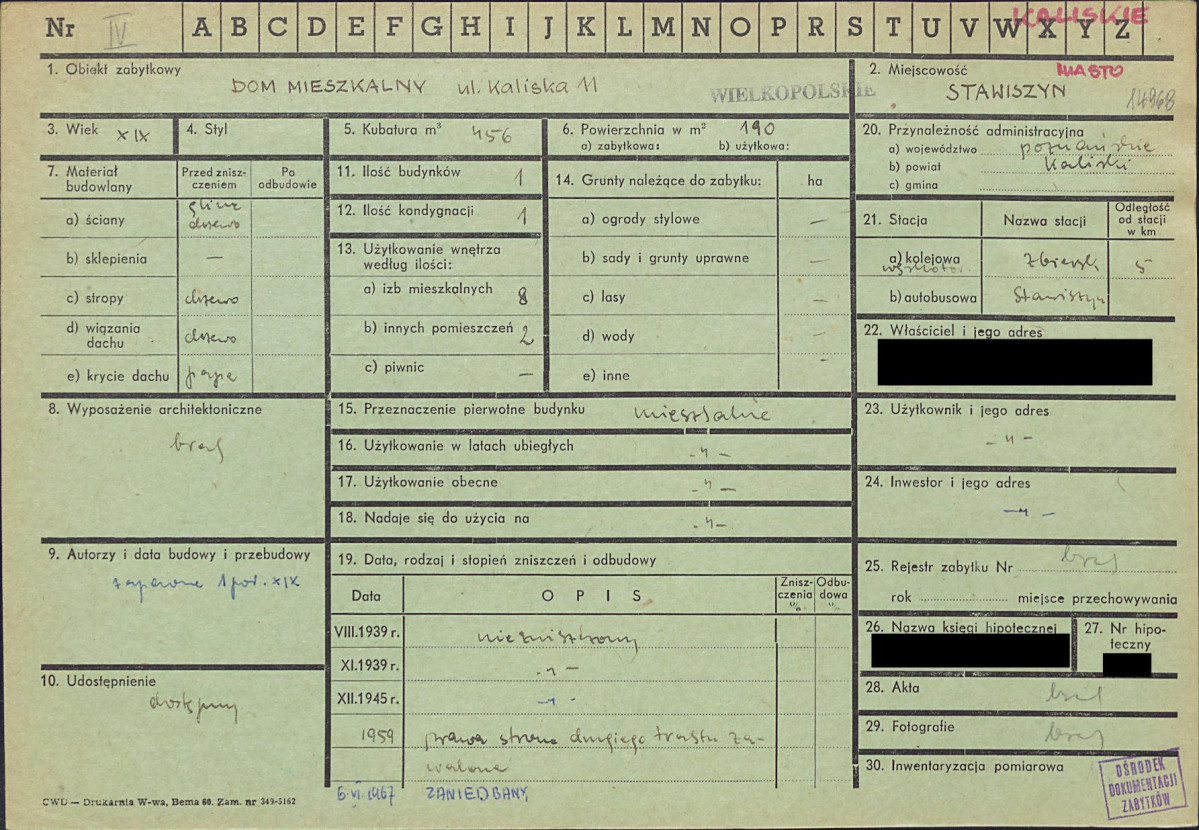 Nr IV A B C D E F G H I J K L M N O P R S T U V W X Y Z
KALISKIE
1. Obiekt zabytkowy
DOM MIESZKALNY ul. Kaliska 11
WIELKOPOLSKIE
2. Miejscowość
MIASTO
STAWISZYN
14968
3. Wiek XIX
4. Styl
5. Kubatura m³ 456
6. Powierzchnia w m² 190
a) zabytkowa: b) użytkowa:
7. Materiał budowlany
Przed znisz-
czeniem
Po
odbudowie
a) ściany glina
drzewo
b) sklepienia —
c) stropy drzewo
d) wiązania
dachu drzewo
e) krycie dachu papa
8. Wyposażenie architektoniczne
brak
9. Autorzy i data budowy i przebudowy
zapewne 1 poł. XIX
10. Udostępnienie
dostępny
11. Ilość budynków 1
12. Ilość kondygnacji 1
13. Użytkowanie wnętrza
według ilości:
a) izb mieszkalnych 8
b) innych pomieszczeń 2
c) piwnic —
14. Grunty należące do zabytku: ha
a) ogrody stylowe —
b) sady i grunty uprawne —
c) lasy —
d) wody —
e) inne -
15. Przeznaczenie pierwotne budynku mieszkalne
16. Użytkowanie w latach ubiegłych -"-
17. Użytkowanie obecne -"-
18. Nadaje się do użycia na -"-
19. Data, rodzaj i stopień zniszczeń i odbudowy
Data OPIS Znisz-
czenia
% Odbu-
dowa
%
VIII.1939 r. niezniszczony
XI.1939 r. -"-
XII.1945 r. -"-
1959 prawa strona drugiego traktu za-
walona
6.VI.1967 ZANIEDBANY
20. Przynależność administracyjna
a) województwo poznańskie
b) powiat Kaliski
c) gmina
21. Stacja Nazwa stacji Odległość
od stacji
w km
a) kolejowa Zbiersk 5
b) autobusowa Stawiszyn
22. Właściciel i jego adres
23. Użytkownik i jego adres
-"-
24. Inwestor i jego adres
-"-
25. Rejestr zabytku Nr brak
rok miejsce przechowywania
26. Nazwa księgi hipotecznej
27. Nr hipo-
teczny
28. Akta brak
29. Fotografie brak
30. Inwentaryzacja pomiarowa
OŚRODEK
DOKUMENTACJI
ZABYTKÓW
CWD — Drukarnia W-wa, Bema 60. Zam. nr 349-5162